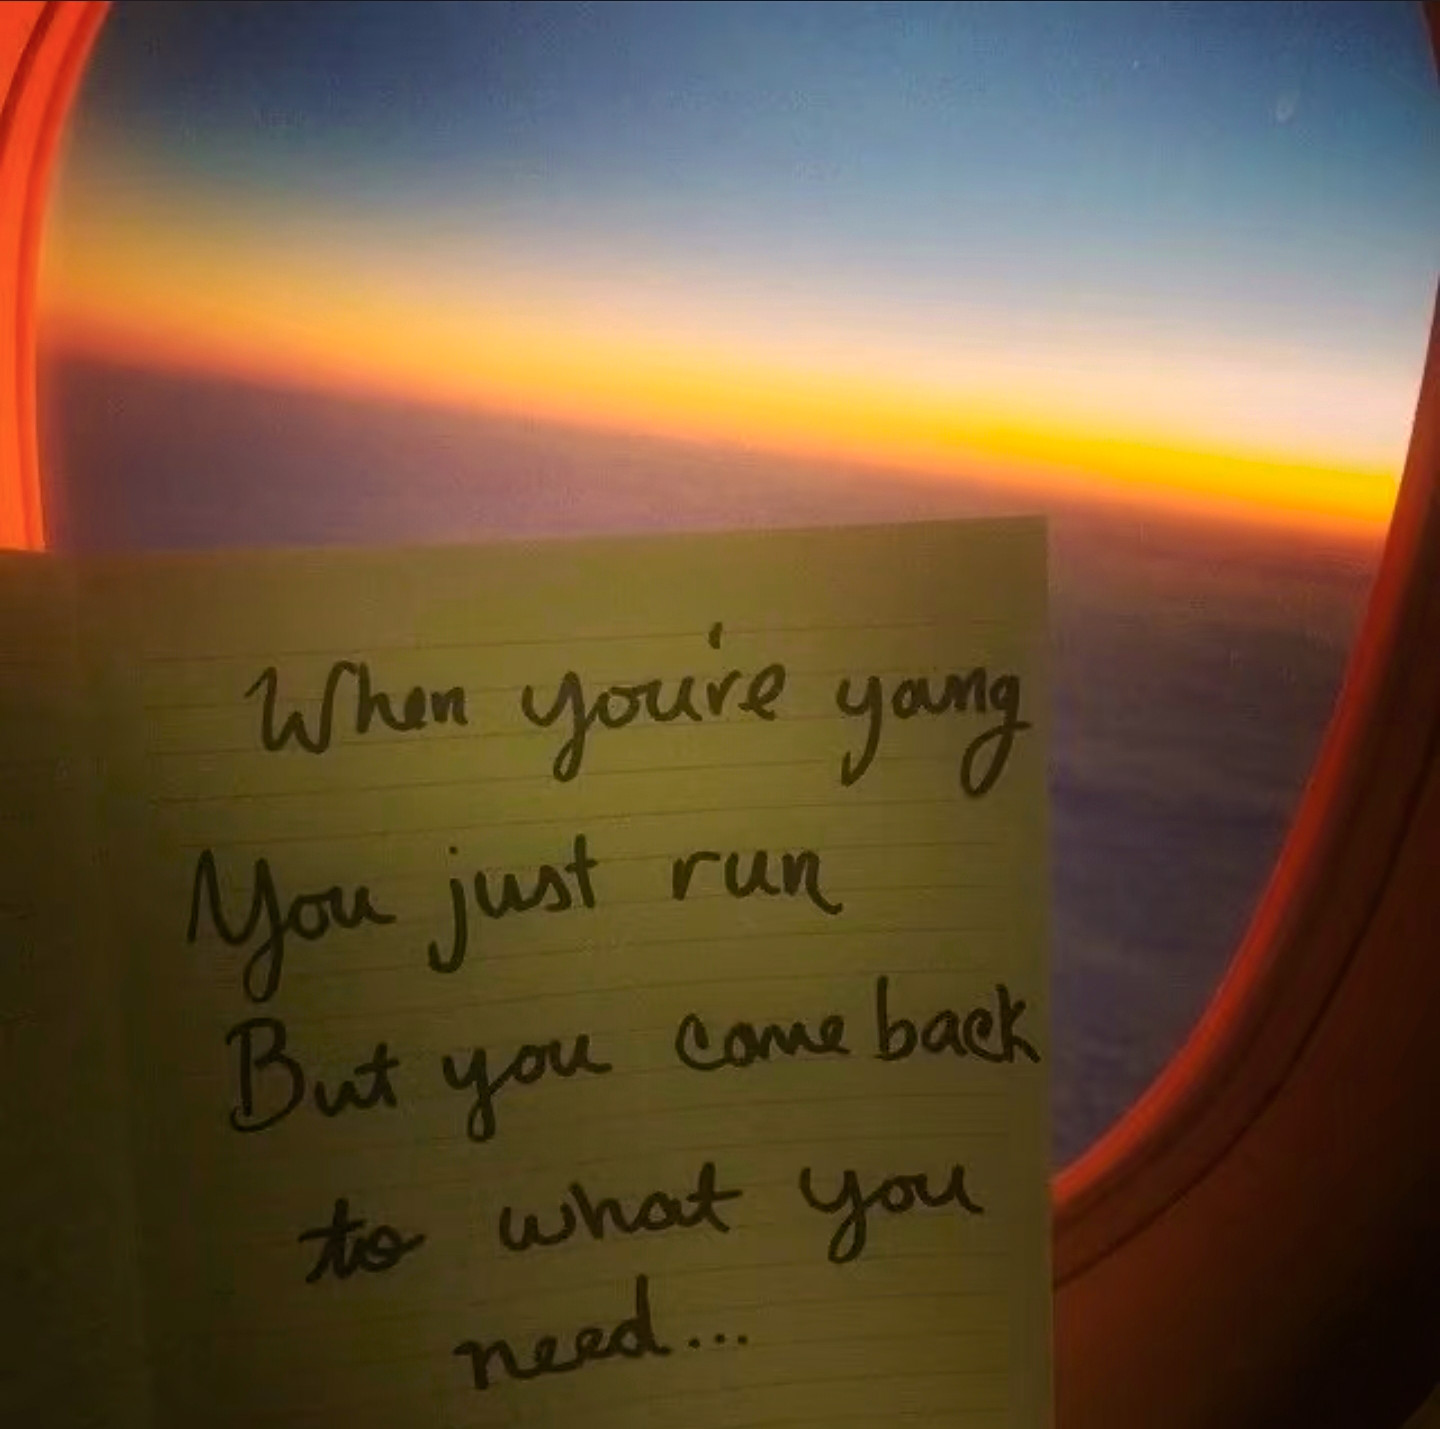 When you're young
You just run
But you come back
to what you
need...